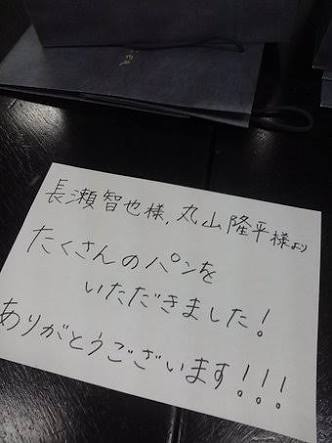 長瀬智也様,丸山隆平様より
たくさんのパンを
いただきました!
ありがとうございます!!!